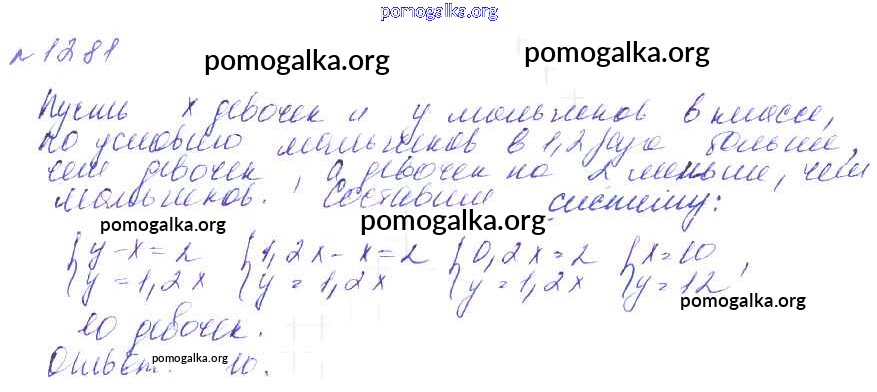 pomogalka.org
№ 1281
pomogalka.org pomogalka.org
Пусть x девочек и y мальчиков в классе,
по условию мальчиков в 1,2 раза больше,
чем девочек, а девочек на 2 меньше, чем
мальчиков. Составим систему:
pomogalka.org pomogalka.org
{ y - x = 2 { 1,2x - x = 2 { 0,2x = 2 { x = 10
{ y = 1,2x { y = 1,2x { y = 1,2x { y = 12 ,
pomogalka.org
10 девочек.
Ответ: 10.
pomogalka.org